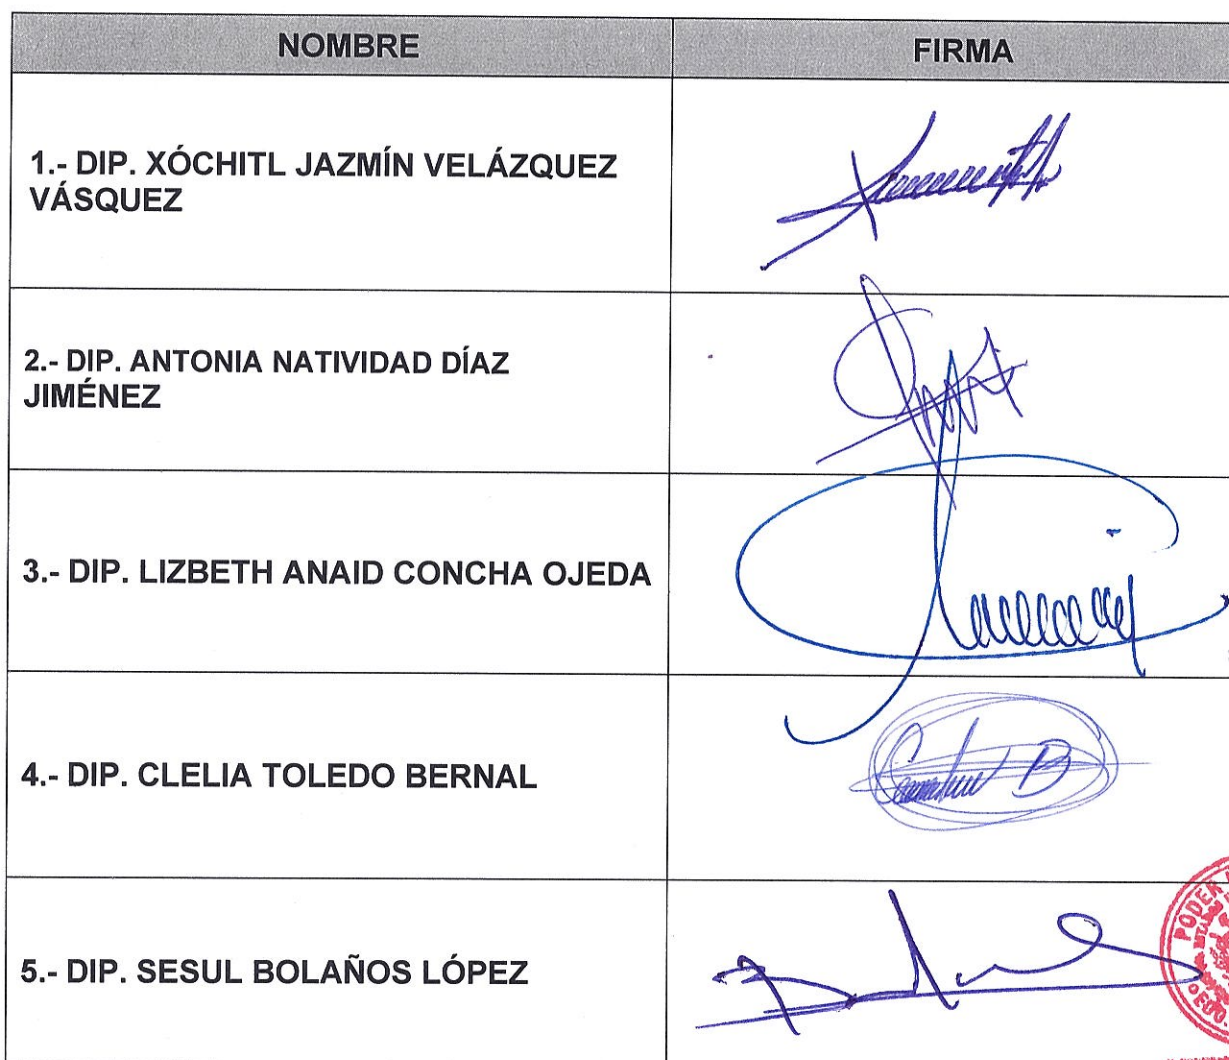 NOMBRE
FIRMA
1.- DIP. XÓCHITL JAZMÍN VELÁZQUEZ
VÁSQUEZ
2.- DIP. ANTONIA NATIVIDAD DÍAZ
JIMÉNEZ
3.- DIP. LIZBETH ANAID CONCHA OJEDA
4.- DIP. CLELIA TOLEDO BERNAL
5.- DIP. SESUL BOLAÑOS LÓPEZ
PODER